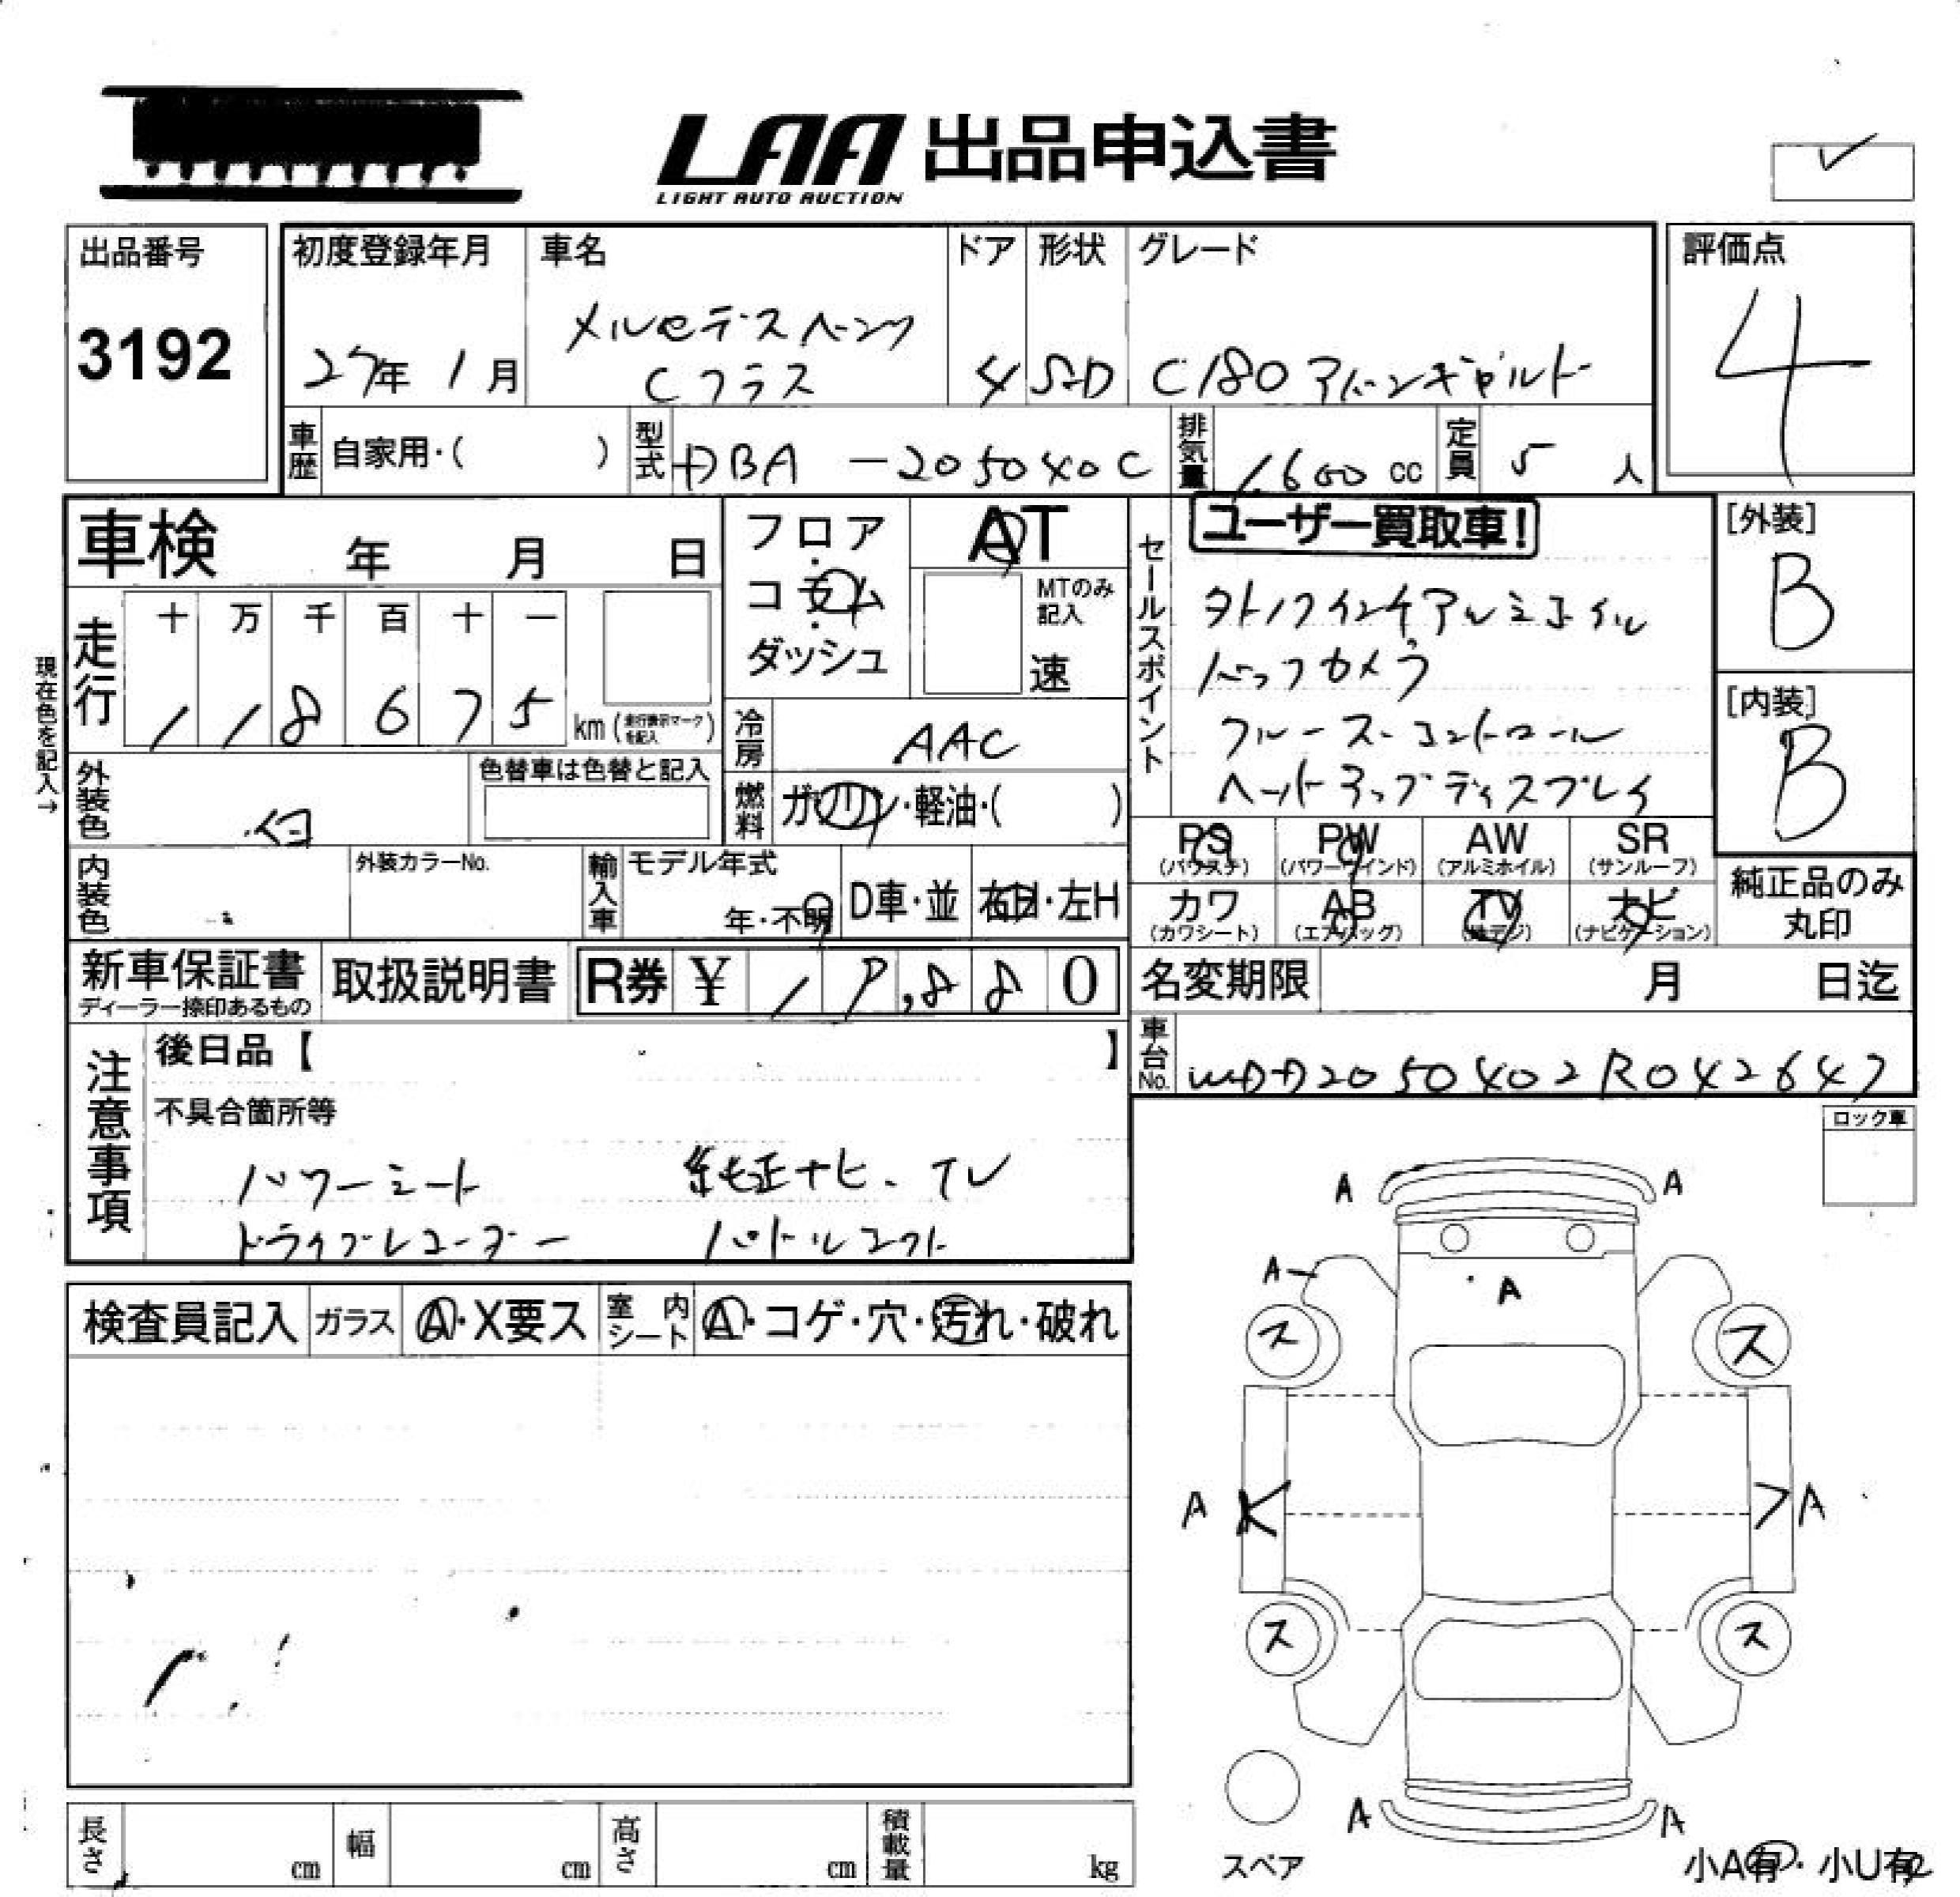 LAA 出品申込書
LIGHT AUTO AUCTION
出品番号
3192
初度登録年月
27年 1月
車名
メルセデスベンツ
Cクラス
ドア
4
形状
SD
グレード
C180 アバンギャルド
評価点
4
車歴
自家用・( )
型式
DBA -205040C
排気量
1,600 cc
定員
5 人
車検 年 月 日
フロア・コラム・ダッシュ
AT
MTのみ記入
速
走行
十 万 千 百 十 一
1 1 8 6 7 5
km (走行表示マークを記入)
現在色を記入→
冷房
AAC
燃料
ガソリン・軽油・( )
外装色
白
色替車は色替と記入
内装色
外装カラーNo.
輸入車
モデル年式
年・不明
D車・並
右H・左H
セールスポイント
ユーザー買取車!
バックカメラ
クルーズコントロール
ヘッドアップディスプレイ
[外装]
B
[内装]
B
PS
(パワステ)
PW
(パワーウインド)
AW
(アルミホイル)
SR
(サンルーフ)
カワ
(カワシート)
AB
(エアバッグ)
TV
(地デジ)
ナビ
(ナビゲーション)
純正品のみ
丸印
新車保証書
ディーラー捺印あるもの
取扱説明書
R券 ¥ 19,880
名変期限 月 日迄
車台No.
WDD2050402R042647
注意事項
後日品【 】
不具合箇所等
パワーシート 純正ナビ、TV
ドライブレコーダー パドルシフト
ロック車
検査員記入
ガラス
A・X要ス
室内シート
A・コゲ・穴・汚れ・破れ
A A
A
A
ス ス
A A
ス ス
A A
スペア
小A有・小U有
長さ cm
幅 cm
高さ cm
積載量 kg